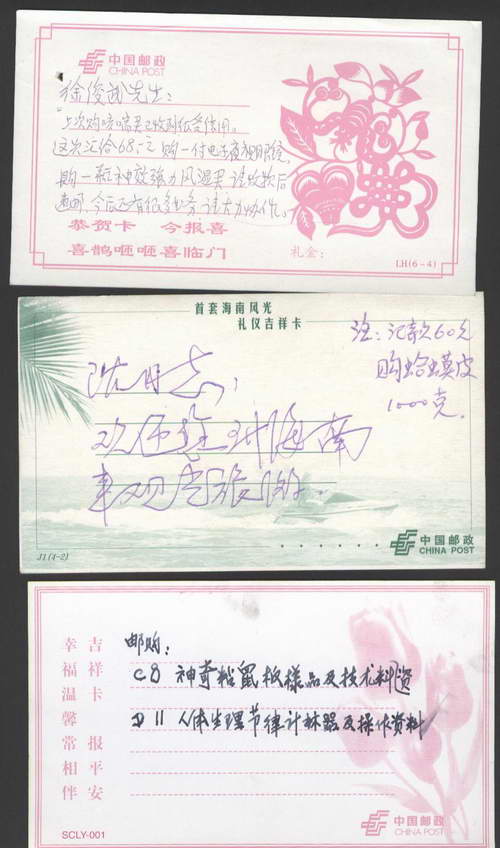 中国邮政
CHINA POST
徐俊武先生：
上次购咳喘果已收到很管用。
这次汇给68元 购一付电子
购一神效强力风湿果 请收款后
今后还有很多业务，请大力协作。
恭贺卡 今报喜
喜鹊咂咂喜临门
礼金：
LH(6-4)
首套海南风光
礼仪吉祥卡
注：汇款60元
购蛤蟆皮
1000克。
沈同志，
欢伍来海南
J1(4-2)
中国邮政
CHINA POST
吉祥卡 报平安
幸福温馨常相伴
邮购：
C8 神奇粘鼠板样品及技术料资
D11 人体生理节律计算器及操作资料
SCLY-001
中国邮政
CHINA POST